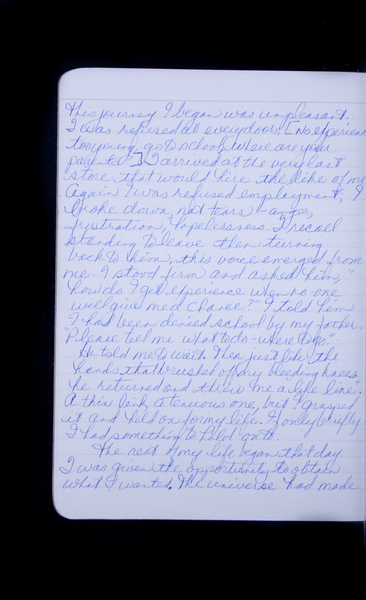 this journey I began was unpleasant.
I was refused at every door. [No experience
too young, go to school, where are your
parents"] I arrived at the very last
store that would hire the like of me
Again I was refused employment, I
broke down, not tears - anger,
frustration, hopelessness. I recall
standing to leave then turning
back to him, this voice emerged from
me. I stood firm and asked him,"
"how do I get experience when no-one
will give me a chance?" I told him
"I had been denied school by my father.
Please tell me what to do - where to go."
He told me to wait. Then just like the
hands that brushed off my bleeding knees
he returned and threw me a "life line".
A thin link, a tenuous one, but I grasped
it and held on for my life. If only briefly
I had something to hold onto.
The rest of my life began that day.
I was given the opportunity to obtain
what I wanted. The universe had made